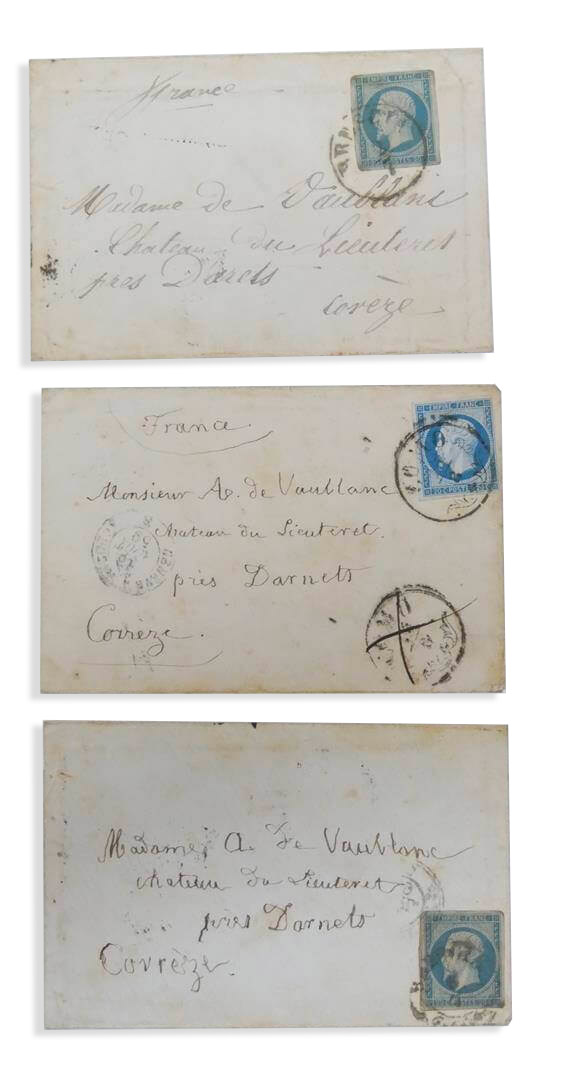 France
EMPIRE FRANC
20 C. POSTES 20
Madame de Vaublanc
Chateau du Lieuteret
près Darnets
Corèze
France
EMPIRE FRANC
20 C POSTES 20
Monsieur A. de Vaublanc
chateau du Lieuteret.
près Darnets
Corrèze.
Madame A. de Vaublanc
chateau du Lieuteret
près Darnets
Corrèze.
EMPIRE FRANC
20 C POSTES 20